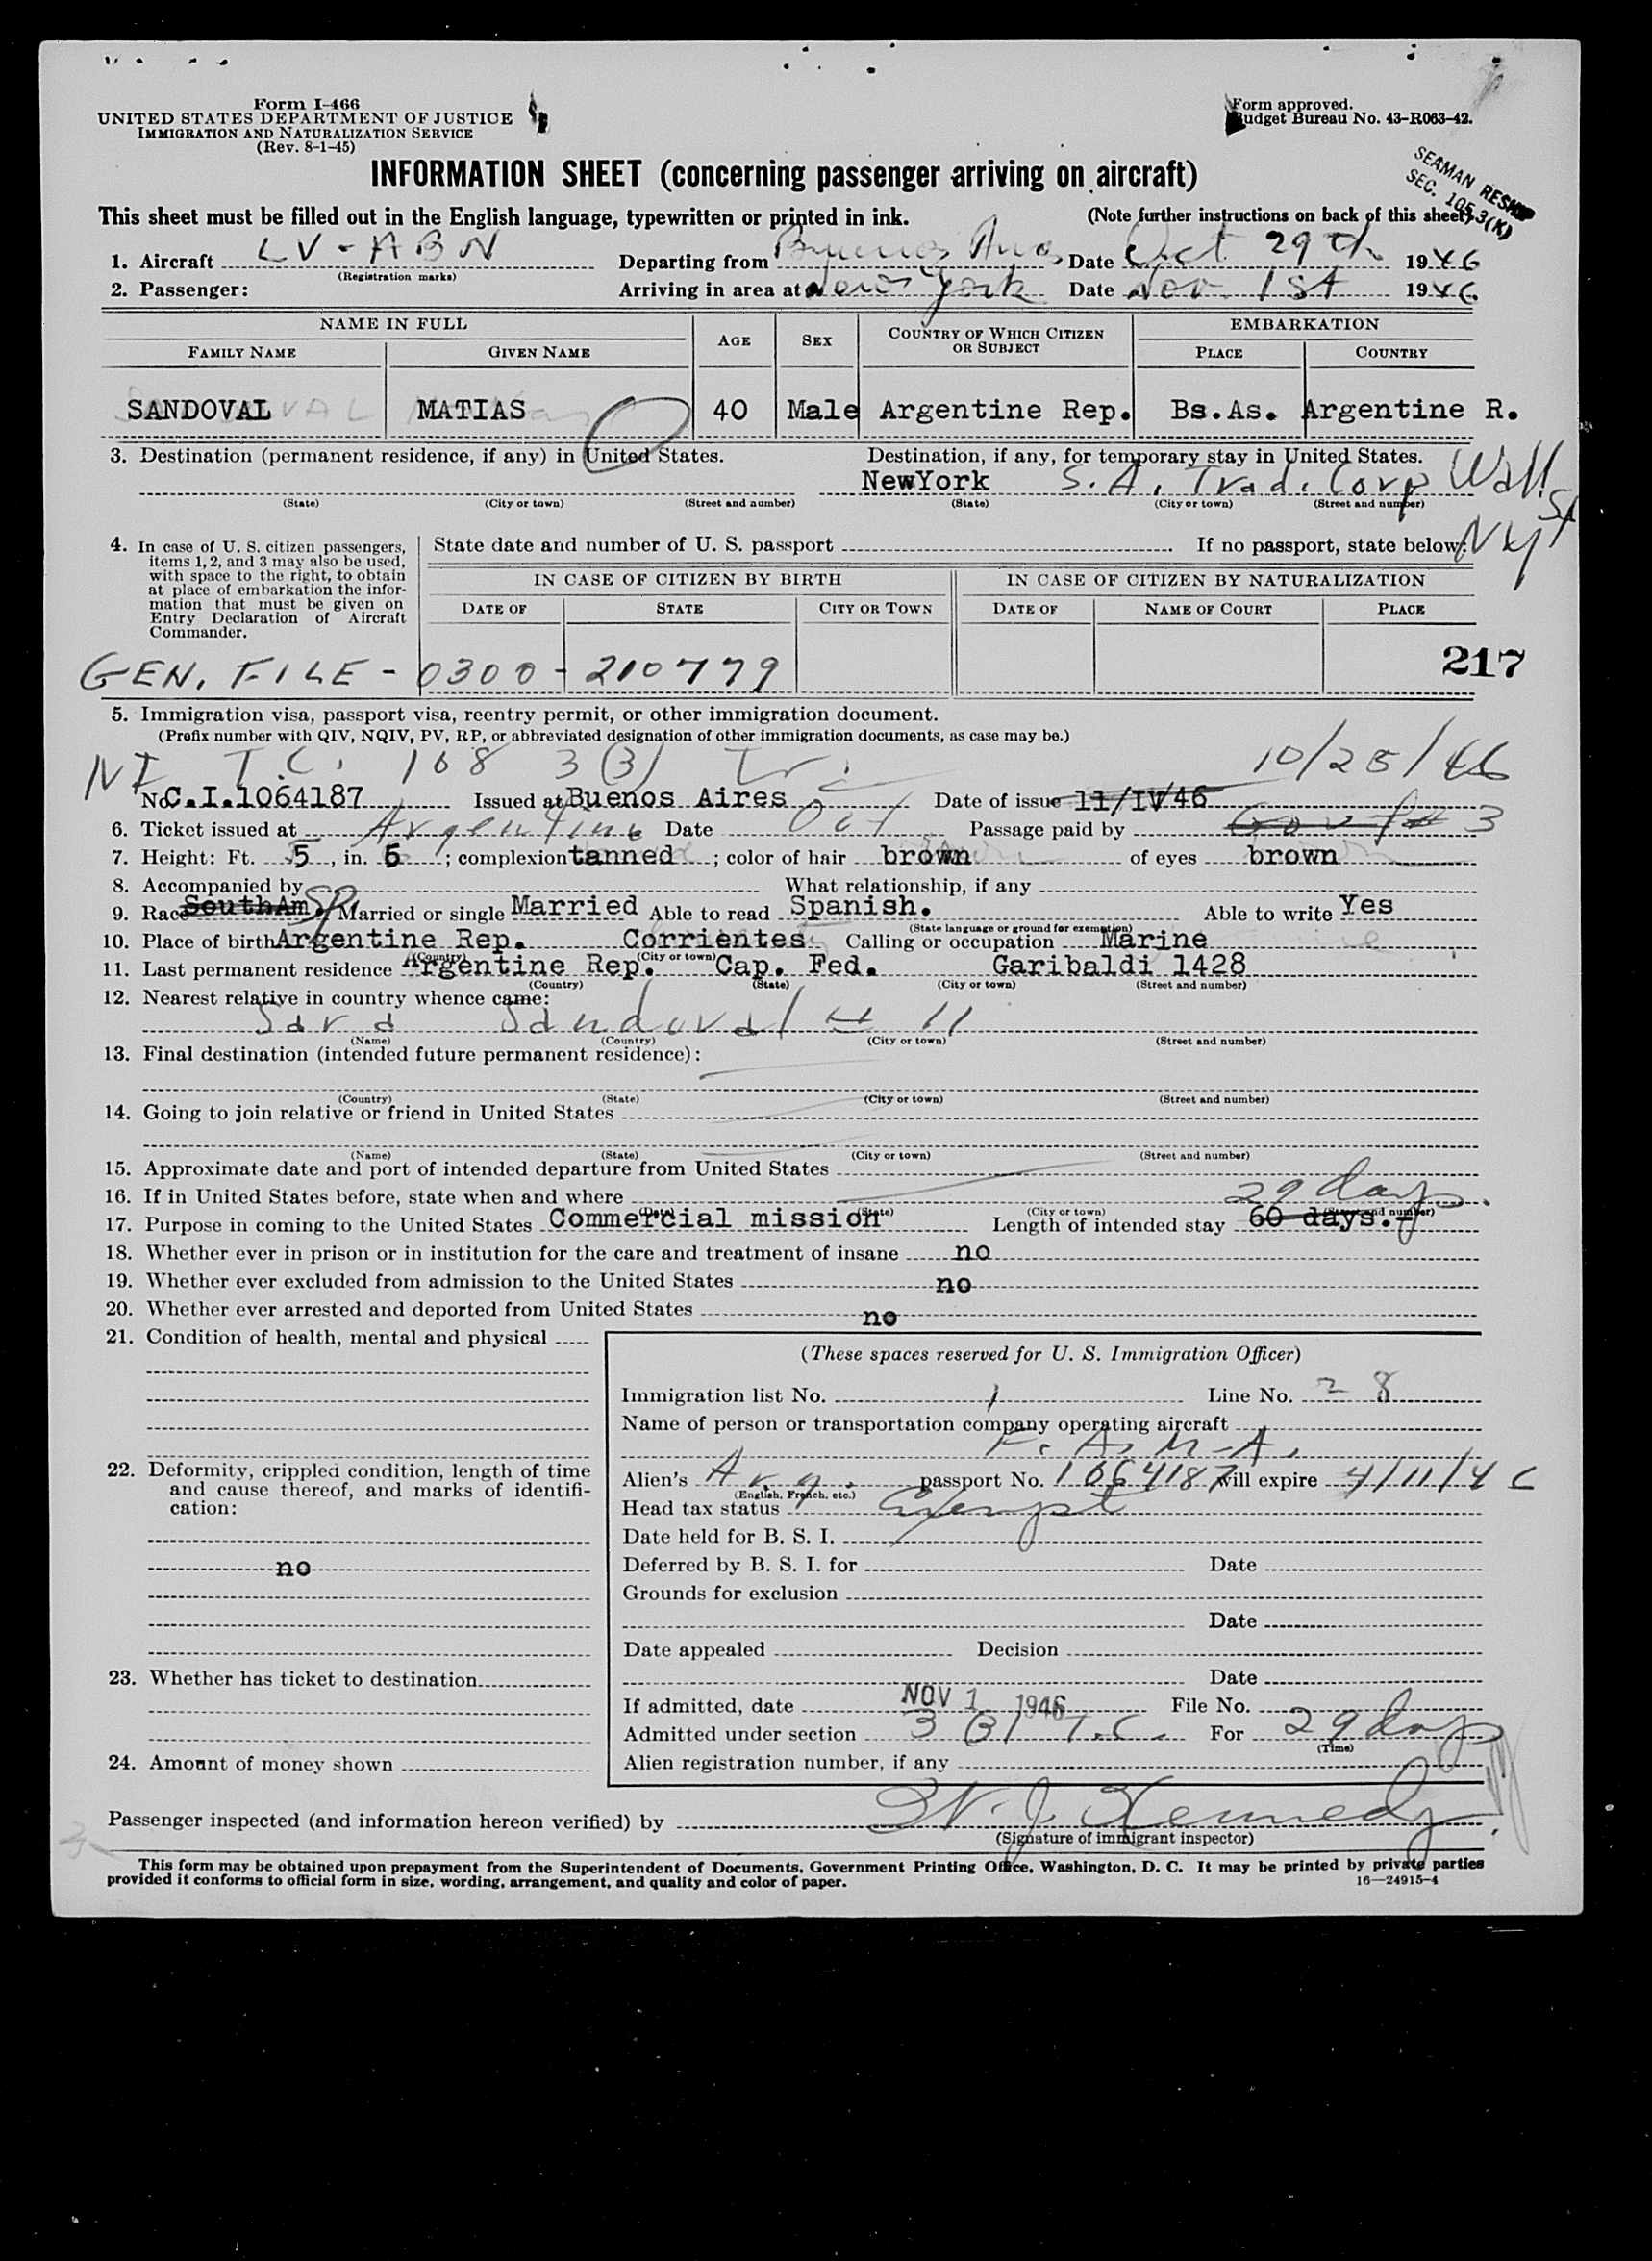 Form I-466
UNITED STATES DEPARTMENT OF JUSTICE
IMMIGRATION AND NATURALIZATION SERVICE
(Rev. 8-1-45)
Form approved.
Budget Bureau No. 43-R063-42.
INFORMATION SHEET (concerning passenger arriving on aircraft)
SEAMAN
SEC. 105.3(K)
This sheet must be filled out in the English language, typewritten or printed in ink. (Note further instructions on back of this sheet)
1. Aircraft LV-ABN Departing from Buenos Aires Date Oct 29th 1946
(Registration marks)
2. Passenger: Arriving in area at New York Date Nov. 1st 1946
NAME IN FULL AGE SEX COUNTRY OF WHICH CITIZEN OR SUBJECT EMBARKATION
FAMILY NAME GIVEN NAME PLACE COUNTRY
SANDOVAL MATIAS 40 Male Argentine Rep. Bs.As. Argentine R.
3. Destination (permanent residence, if any) in United States. Destination, if any, for temporary stay in United States.
NewYork S.A. Trad. Corp Wall St
(State) (City or town) (Street and number) (State) (City or town) (Street and number)
4. In case of U. S. citizen passengers, items 1, 2, and 3 may also be used, with space to the right, to obtain at place of embarkation the information that must be given on Entry Declaration of Aircraft Commander.
State date and number of U. S. passport If no passport, state below:
IN CASE OF CITIZEN BY BIRTH IN CASE OF CITIZEN BY NATURALIZATION
DATE OF STATE CITY OR TOWN DATE OF NAME OF COURT PLACE
GEN. FILE - 0300 - 210779
217
5. Immigration visa, passport visa, reentry permit, or other immigration document.
(Prefix number with QIV, NQIV, PV, RP, or abbreviated designation of other immigration documents, as case may be.)
NI T.C. 168 3(3) Tr. 10/25/46
No. C.I.1064187 Issued at Buenos Aires Date of issue 11/IV/46
6. Ticket issued at Argentine Date Oct Passage paid by Govt 3
7. Height: Ft. 5, in. 5; complexion tanned; color of hair brown of eyes brown
8. Accompanied by What relationship, if any
9. Race SouthAm. Sp. Married or single Married Able to read Spanish. Able to write Yes
(State language or ground for exemption)
10. Place of birth Argentine Rep. Corrientes Calling or occupation Marine
(Country) (City or town)
11. Last permanent residence Argentine Rep. Cap. Fed. Garibaldi 1428
(Country) (State) (City or town) (Street and number)
12. Nearest relative in country whence came:
Sara Sandoval w 11
(Name) (Country) (City or town) (Street and number)
13. Final destination (intended future permanent residence):
(Country) (State) (City or town) (Street and number)
14. Going to join relative or friend in United States
(Name) (State) (City or town) (Street and number)
15. Approximate date and port of intended departure from United States
16. If in United States before, state when and where
29 days.
(Date) (State) (City or town) (Street and number)
17. Purpose in coming to the United States Commercial mission Length of intended stay 60 days.-
18. Whether ever in prison or in institution for the care and treatment of insane no
19. Whether ever excluded from admission to the United States no
20. Whether ever arrested and deported from United States no
21. Condition of health, mental and physical
22. Deformity, crippled condition, length of time and cause thereof, and marks of identification:
no
23. Whether has ticket to destination
24. Amount of money shown
(These spaces reserved for U. S. Immigration Officer)
Immigration list No. 1 Line No. 28
Name of person or transportation company operating aircraft
F.A.M.A.
Alien's Arg. passport No. 1064187 will expire 4/11/46
(English, French, etc.)
Head tax status Exempt
Date held for B. S. I.
Deferred by B. S. I. for Date
Grounds for exclusion
Date
Date appealed Decision
Date
If admitted, date NOV 1 1946 File No.
Admitted under section 3(3) T.C. For 29 days
(Time)
Alien registration number, if any
Passenger inspected (and information hereon verified) by W. J. Kennedy
(Signature of immigrant inspector)
This form may be obtained upon prepayment from the Superintendent of Documents, Government Printing Office, Washington, D. C. It may be printed by private parties
provided it conforms to official form in size, wording, arrangement, and quality and color of paper. 16—24915-4